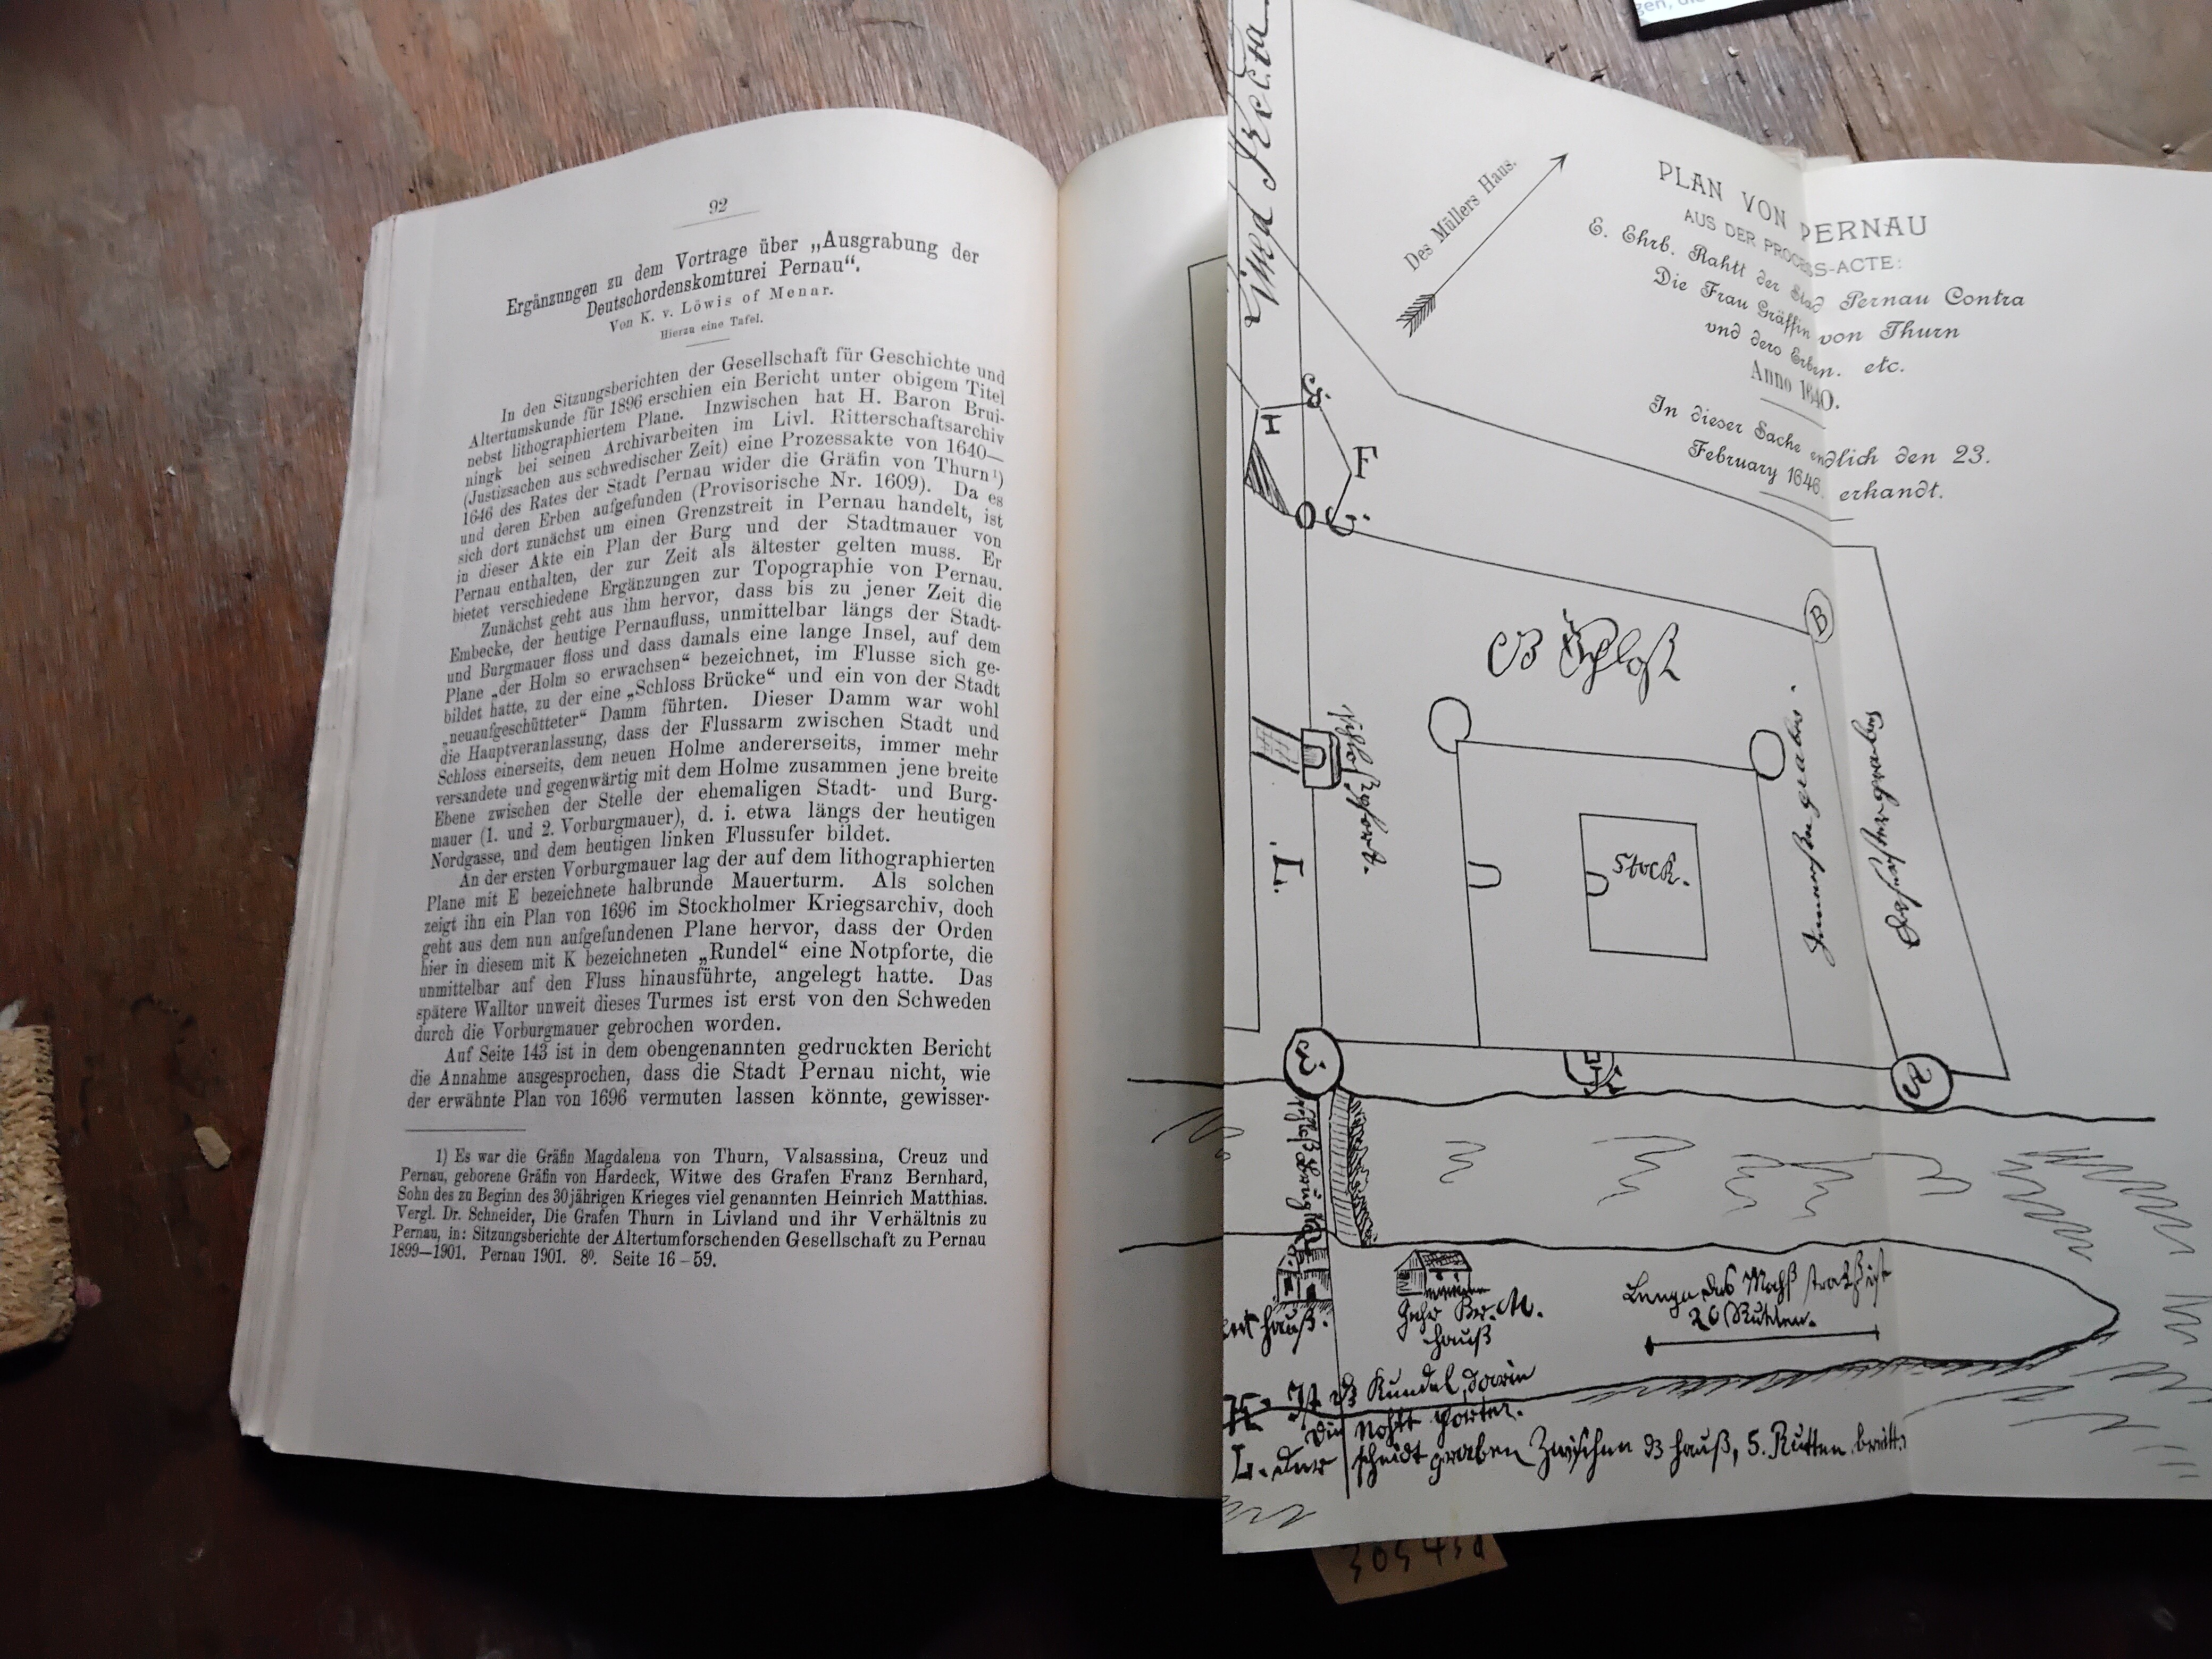 92
Ergänzungen zu dem Vortrage über „Ausgrabung der
Deutschordenskomturei Pernau“.
Von K. v. Löwis of Menar.
Hierzu eine Tafel.
In den Sitzungsberichten der Gesellschaft für Geschichte und
Altertumskunde für 1896 erschien ein Bericht unter obigem Titel
nebst lithographiertem Plane. Inzwischen hat H. Baron Brui-
ningk bei seinen Archivarbeiten im Livl. Ritterschaftsarchiv
(Justizsachen aus schwedischer Zeit) eine Prozessakte von 1640—
1646 des Rates der Stadt Pernau wider die Gräfin von Thurn¹)
und deren Erben aufgefunden (Provisorische Nr. 1609). Da es
sich dort zunächst um einen Grenzstreit in Pernau handelt, ist
in dieser Akte ein Plan der Burg und der Stadtmauer von
Pernau enthalten, der zur Zeit als ältester gelten muss. Er
bietet verschiedene Ergänzungen zur Topographie von Pernau.
Zunächst geht aus ihm hervor, dass bis zu jener Zeit die
Embecke, der heutige Pernaufluss, unmittelbar längs der Stadt-
und Burgmauer floss und dass damals eine lange Insel, auf dem
Plane „der Holm so erwachsen“ bezeichnet, im Flusse sich ge-
bildet hatte, zu der eine „Schloss Brücke“ und ein von der Stadt
„neuaufgeschütteter“ Damm führten. Dieser Damm war wohl
die Hauptveranlassung, dass der Flussarm zwischen Stadt und
Schloss einerseits, dem neuen Holme andererseits, immer mehr
versandete und gegenwärtig mit dem Holme zusammen jene breite
Ebene zwischen der Stelle der ehemaligen Stadt- und Burg-
mauer (1. und 2. Vorburgmauer), d. i. etwa längs der heutigen
Nordgasse, und dem heutigen linken Flussufer bildet.
An der ersten Vorburgmauer lag der auf dem lithographierten
Plane mit E bezeichnete halbrunde Mauerturm. Als solchen
zeigt ihn ein Plan von 1696 im Stockholmer Kriegsarchiv, doch
geht aus dem nun aufgefundenen Plane hervor, dass der Orden
hier in diesem mit K bezeichneten „Rundel“ eine Notpforte, die
unmittelbar auf den Fluss hinausführte, angelegt hatte. Das
spätere Walltor unweit dieses Turmes ist erst von den Schweden
durch die Vorburgmauer gebrochen worden.
Auf Seite 143 ist in dem obengenannten gedruckten Bericht
die Annahme ausgesprochen, dass die Stadt Pernau nicht, wie
der erwähnte Plan von 1696 vermuten lassen könnte, gewisser-
1) Es war die Gräfin Magdalena von Thurn, Valsassina, Creuz und
Pernau, geborene Gräfin von Hardeck, Witwe des Grafen Franz Bernhard,
Sohn des zu Beginn des 30jährigen Krieges viel genannten Heinrich Matthias.
Vergl. Dr. Schneider, Die Grafen Thurn in Livland und ihr Verhältnis zu
Pernau, in: Sitzungsberichte der Altertumforschenden Gesellschaft zu Pernau
1899—1901. Pernau 1901. 8⁰. Seite 16—59.
PLAN VON PERNAU
AUS DER PROCESS-ACTE:
E. Ehrb. Rahtt der Stad Pernau Contra
Die Frau Gräffin von Thurn
vnd dero Erben. etc.
Anno 1640.
In dieser Sache endlich den 23.
February 1646. erkandt.
Des Müllers Haus.
Linea Recta
H
F
B
Schloß
Stock.
Schloßpforte.
L.
hauß.
hauß
20 Rutten.
K. Ist dz Rundel, darin
Die Nohtt Pforter.
L. der scheidt graben Zwischen dz hauß, 5. Rutten breitt.